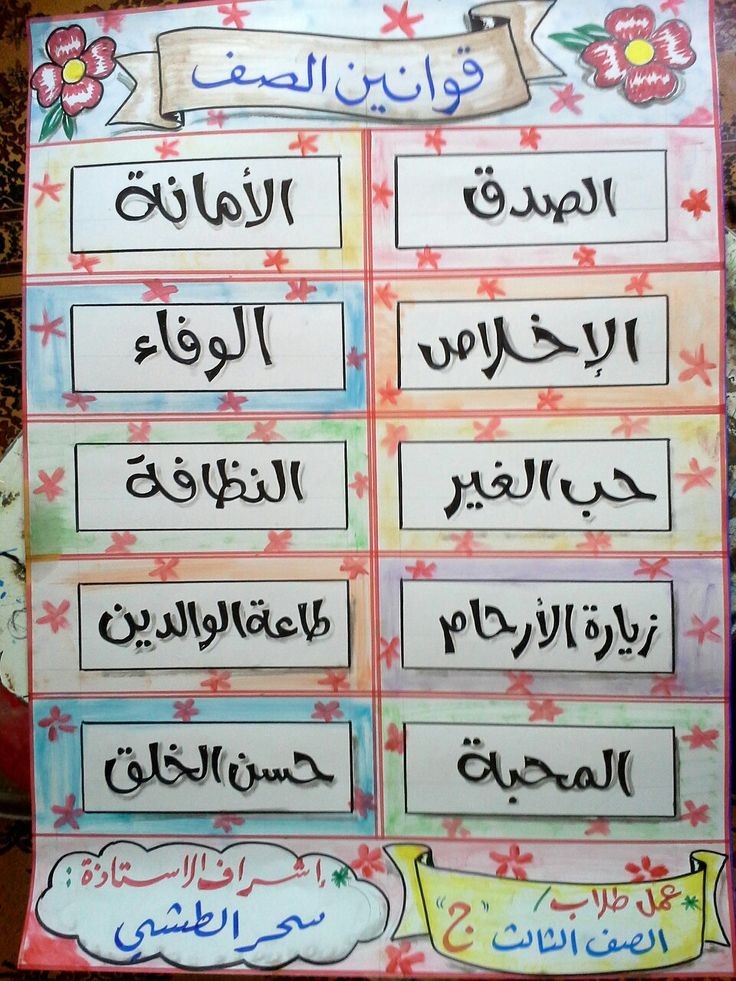 قوانين الصف
الصدق
الأمانة
الإخلاص
الوفاء
حب الغير
النظافة
زيارة الأرحام
طاعة الوالدين
المحبة
حسن الخلق
* عمل طلاب /
الصف الثالث "ج"
* إشراف الاستاذة :
سحر الطشي